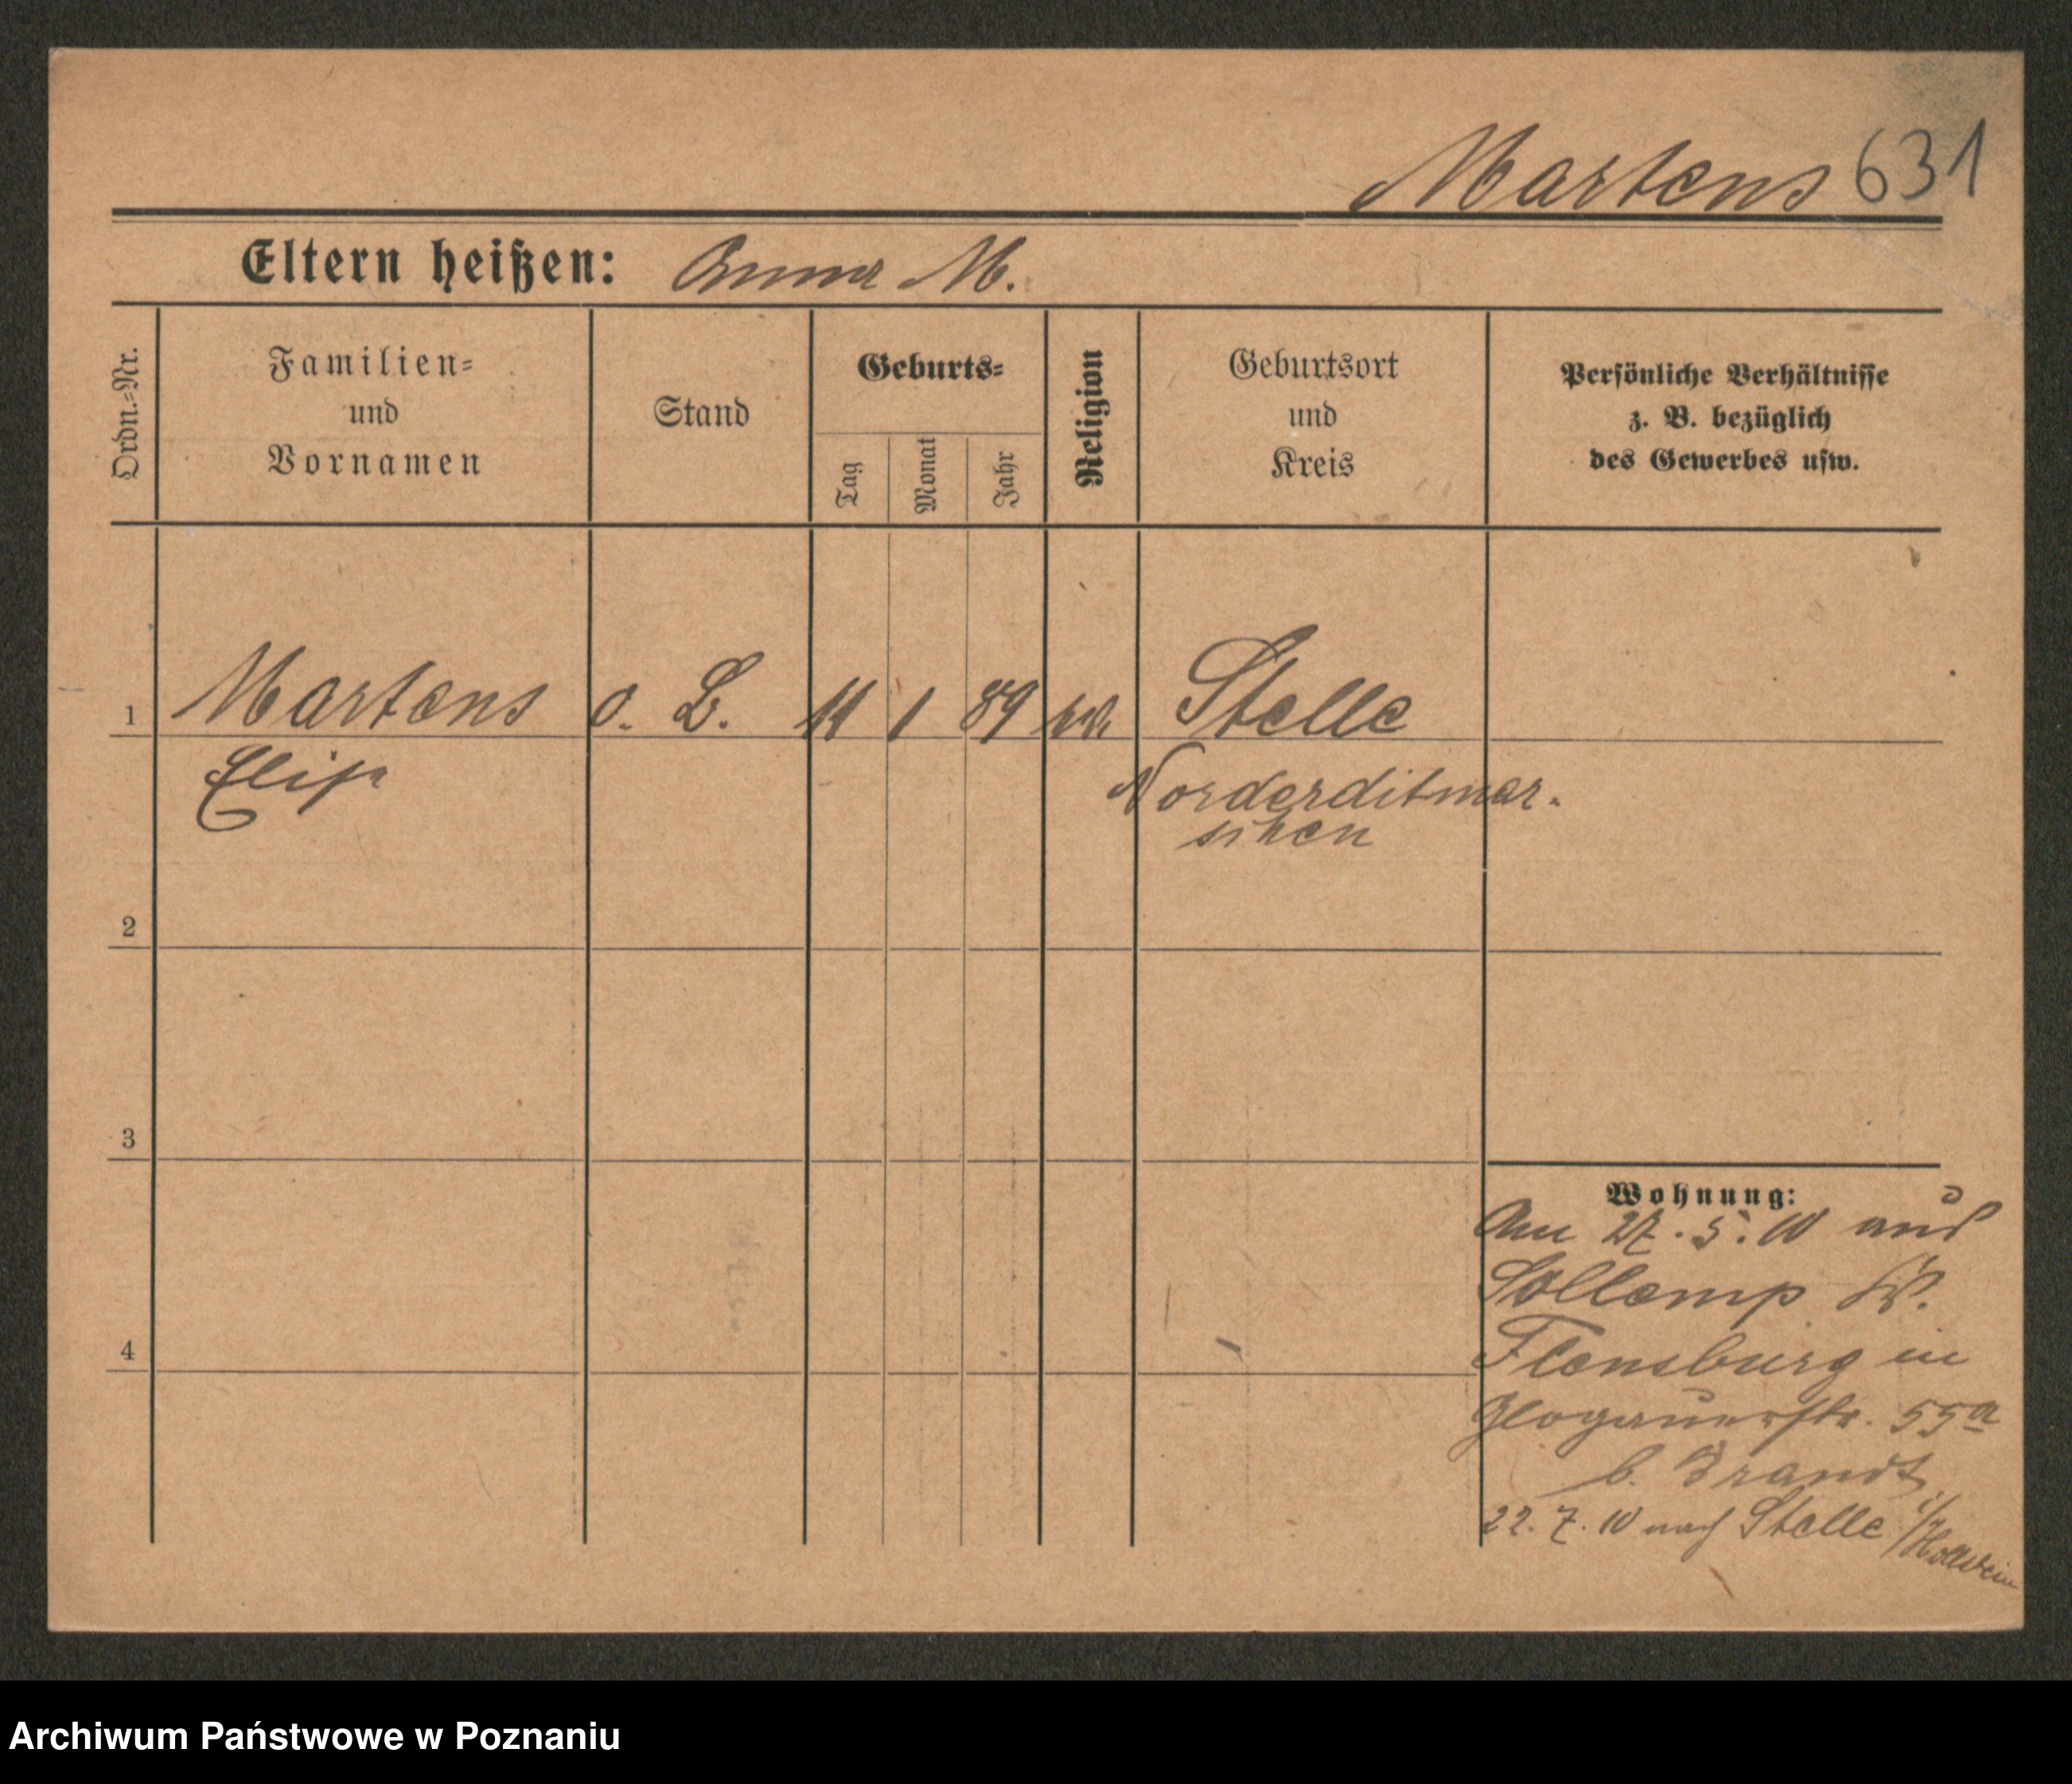 Martens 631
Eltern heißen: Anna M.
Ordn.-Nr.
Familien-
und
Vornamen
Stand
Geburts-
Tag
Monat
Jahr
Religion
Geburtsort
und
Kreis
Persönliche Verhältnisse
z. B. bezüglich
des Gewerbes usw.
1 Martens o. B. 11 1 89 Stelle
Elise
Norderditmar-
schen
2
3
4
Wohnung:
Am 27. 5. 10 aus
Flensburg in
Glogauerstr. 55a
b. Brandt
22. 7. 10 nach Stelle i/Holstein
Archiwum Państwowe w Poznaniu